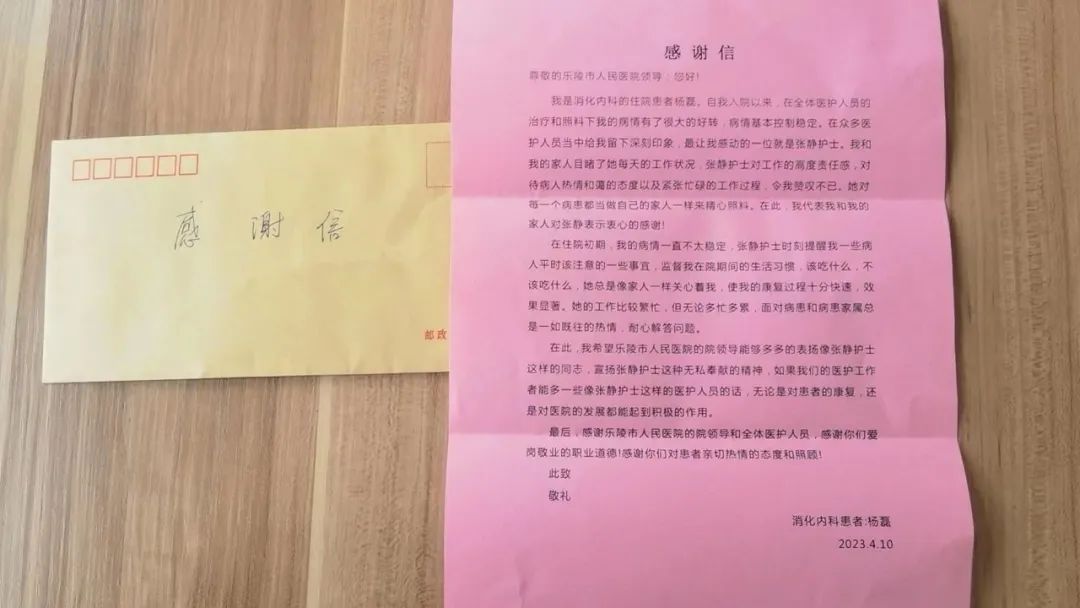 感谢信
邮政
感谢信
尊敬的乐陵市人民医院领导：您好！
我是消化内科的住院患者杨磊。自我入院以来，在全体医护人员的
治疗和照料下我的病情有了很大的好转，病情基本控制稳定。在众多医
护人员当中给我留下深刻印象，最让我感动的一位就是张静护士。我和
我的家人目睹了她每天的工作状况，张静护士对工作的高度责任感，对
待病人热情和蔼的态度以及紧张忙碌的工作过程，令我赞叹不已。她对
每一个病患都当做自己的家人一样来精心照料。在此，我代表我和我的
家人对张静表示衷心的感谢!
在住院初期，我的病情一直不太稳定，张静护士时刻提醒我一些病
人平时该注意的一些事宜，监督我在院期间的生活习惯，该吃什么，不
该吃什么，她总是像家人一样关心着我，使我的康复过程十分快速，效
果显著。她的工作比较繁忙，但无论多忙多累，面对病患和病患家属总
是一如既往的热情，耐心解答问题。
在此，我希望乐陵市人民医院的院领导能够多多的表扬像张静护士
这样的同志，宣扬张静护士这种无私奉献的精神，如果我们的医护工作
者能多一些像张静护士这样的医护人员的话，无论是对患者的康复，还
是对医院的发展都能起到积极的作用。
最后，感谢乐陵市人民医院的院领导和全体医护人员，感谢你们爱
岗敬业的职业道德!感谢你们对患者亲切热情的态度和照顾!
此致
敬礼
消化内科患者:杨磊
2023.4.10